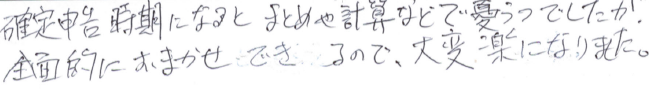 確定申告時期になるとまとめや計算などで憂うつでしたが、
全面的におまかせできるので、大変楽になりました。